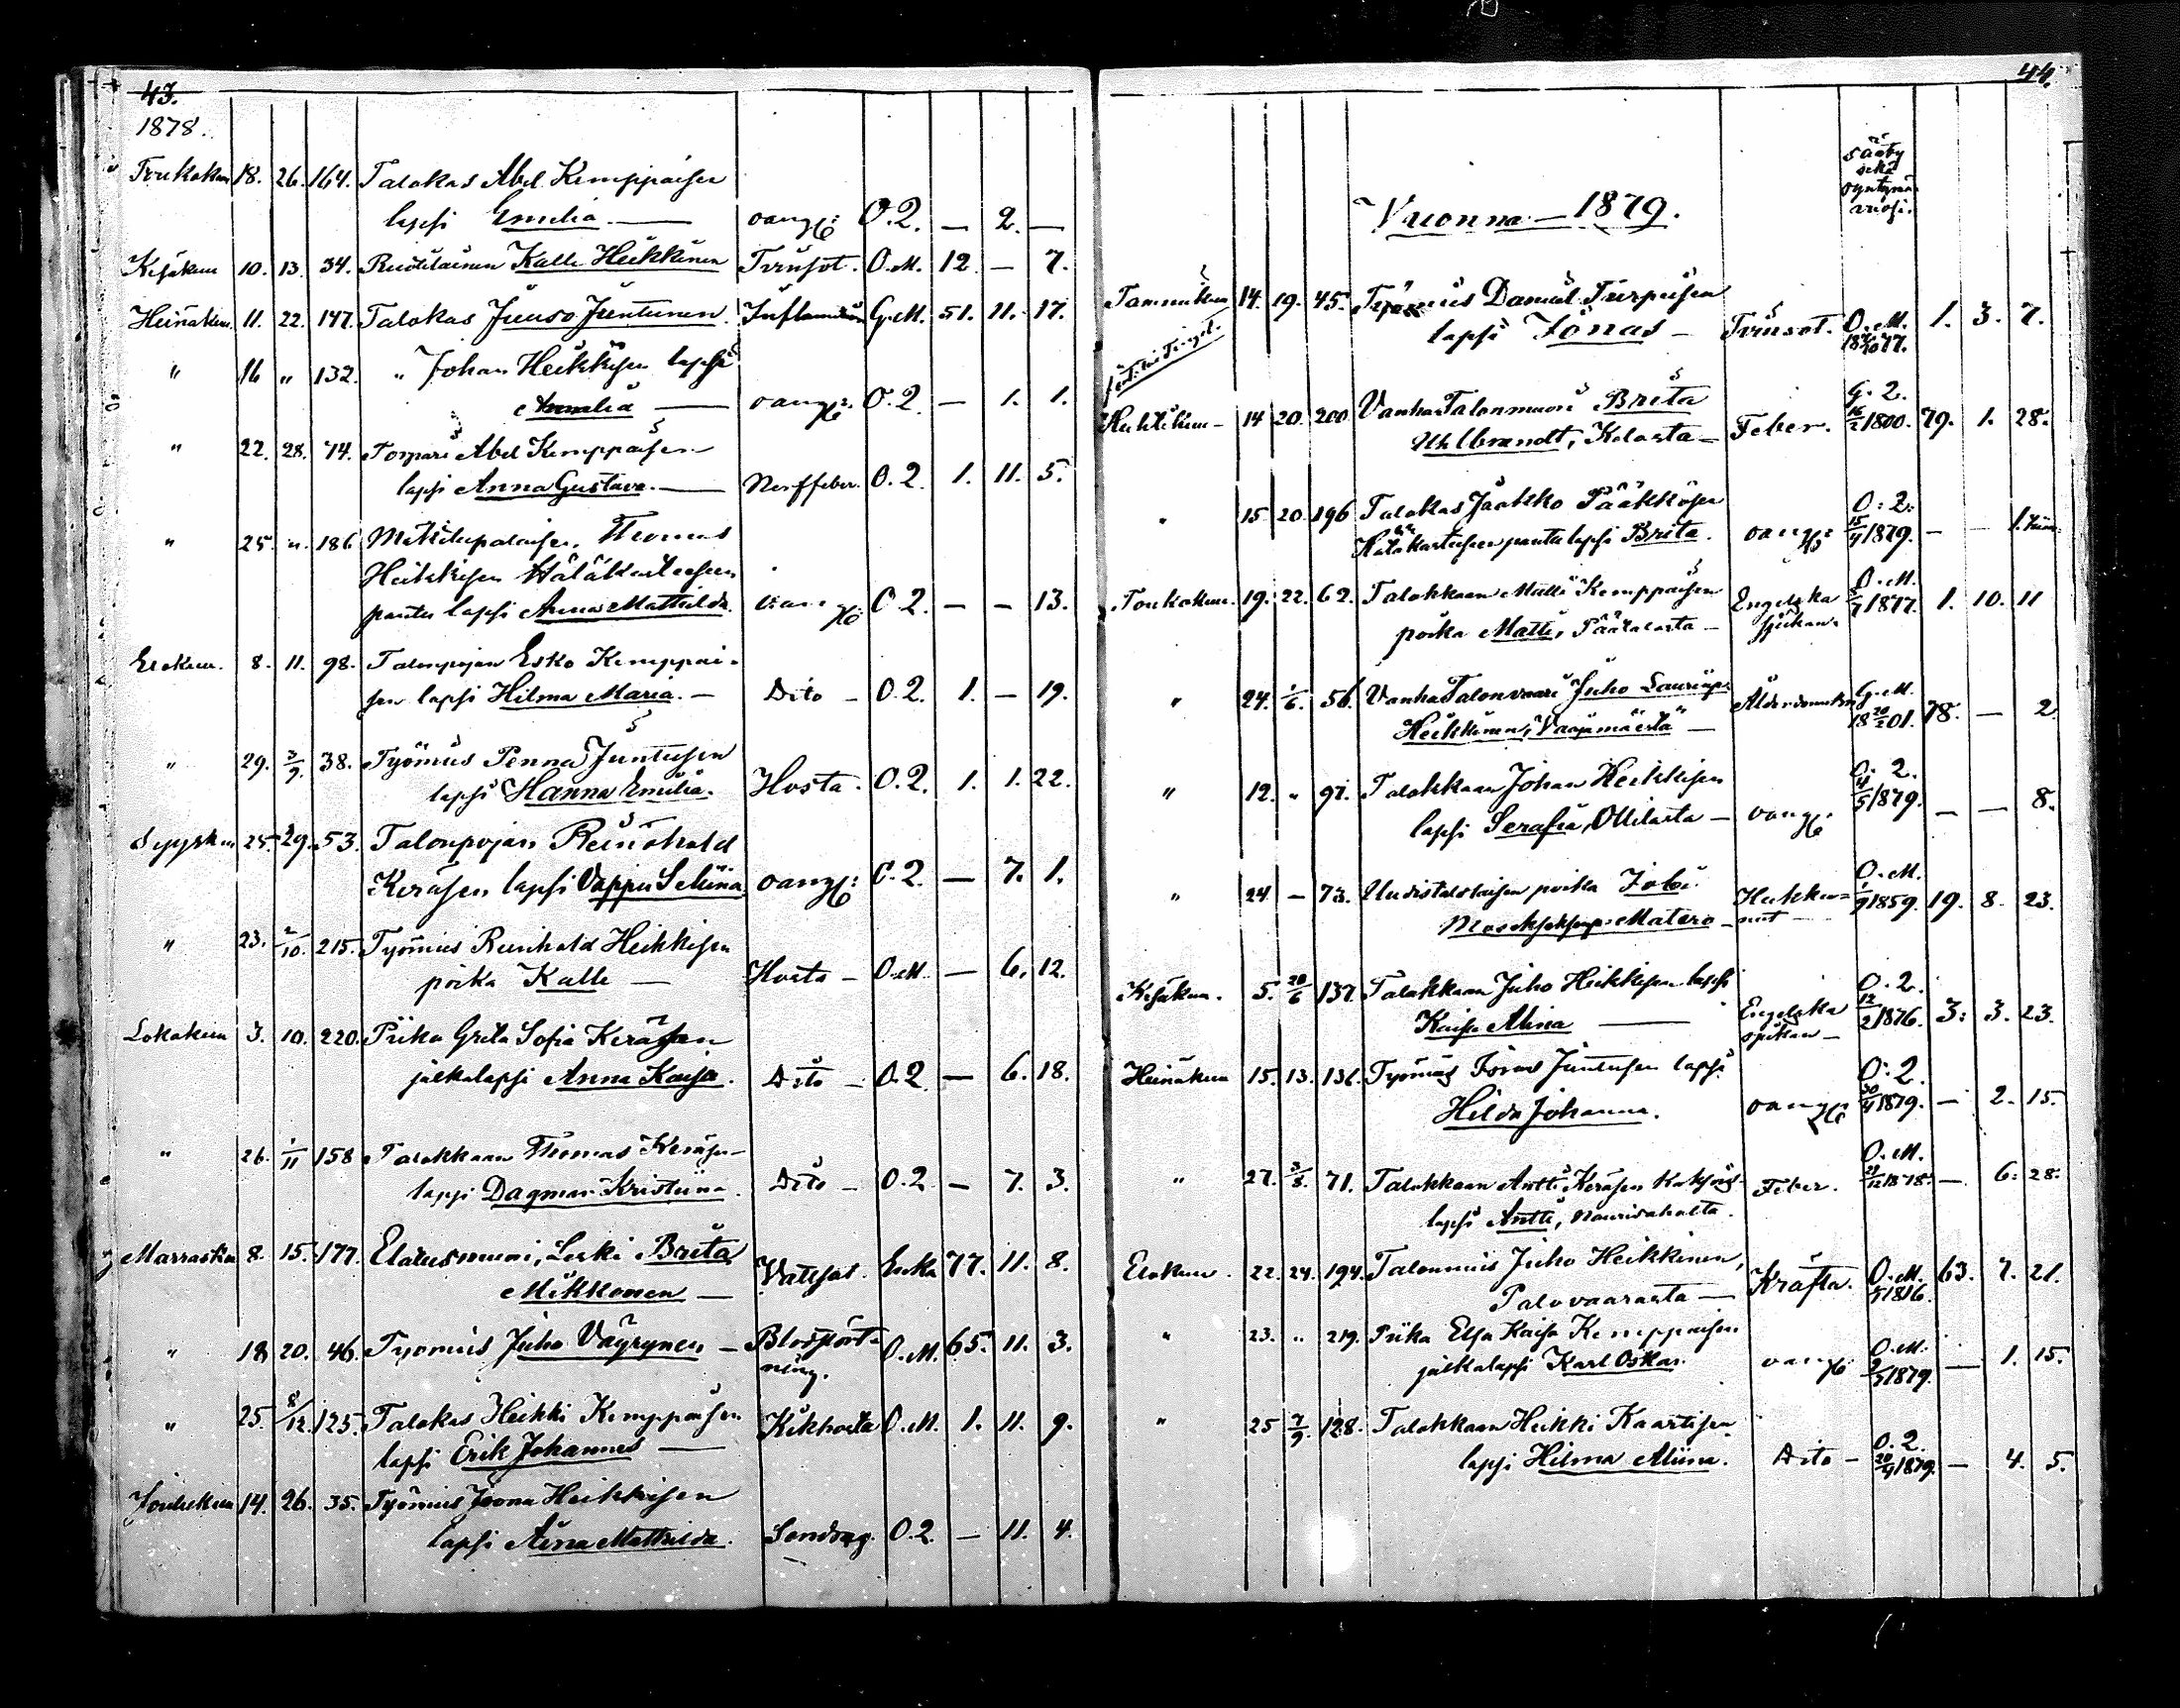 43.
1878.
Toukokuu 18. 26. 164. Talokas Abel Kemppaisen
lapsi Emelia — oangf: O.2. — 2. —
Kesäkuu 10. 13. 34. Kalle Heikkinen Tvinsot. O.M. 12. — 7.
Heinäkuu 11. 22. 147. Talokas Juuso Juntunen. G.M. 51. 11. 17.
" 16 " 132. " Johan Heikkisen lapsi
Amalia — oangf: O.2. — 1. 1.
" 22. 28. 74. Torpari Abel Kemppaisen
lapsi Anna Gustava. — Nerffeber. O.2. 1. 11. 5.
" 25. " 186 Thomas
Heikkisen
lapsi Anna Mathilda. oangf: O.2. — — 13.
Elokuu. 8. 11. 98. Talonpojan Esko Kemppai-
sen lapsi Hilma Maria. — Dito — O.2. 1. — 19.
" 29. 3/9. 38. Työmies Penna Juntusen
lapsi Hanna Emilia. Hosta. O.2. 1. 1. 22.
Syyskuu 25. 29. 53. Talonpojan Reinohold
Keräsen lapsi Vappu Seliina oangf: O.2. — 7. 1.
" 23. 2/10. 215. Työmies Reinhold Heikkisen
poika Kalle — Hosta — O.M. — 6. 12.
Lokakuu 3. 10. 220. Piika Greta Sofia Keräsen
jälkalapsi Anna Kaisa. Dito — O.2. — 6. 18.
" 26. 1/11 158 Talokkaan Thomas Keräsen
lapsi Dagmar Kristiina. Dito — O.2. — 7. 3.
Marraskuu 8. 15. 177. Elätusmuori, Leski Brita
Mikkonen — Vattusot. Leski 77. 11. 8.
" 18 20. 46. Työmies Juho Väyrynen — Blodstört-
ning. O.M. 65. 11. 3.
" 25. 8/12. 125. Talokas Heikki Kemppaisen
lapsi Erik Johannes — Kikhosta O.M. 1. 11. 9.
Joulukuu 14. 26. 35. Työmies Joona Heikkisen
lapsi Aina Mathilda. Sendrag. O.2. — 11. 4.
44.
Sääty
sekä
syntymä
vuosi.
Vuonna — 1879.
Tammikuu 14. 19. 45. Työmies Daniel Turpeisen
lapsi Jonas — Tvinsot. O.M. 1. 3. 7.
Huhtikuu — 14 20. 200 Vanha Talonmuori Brita
Uhlbrandt, Kelasta — Feber. G.2. 16/2 1800. 79. 1. 28.
" 15 20. 196 Talokas Jaakko Pääkkösen
lapsi Brita. oangf: O:2: 15/4 1879. — — 1.
Toukokuu. 19. 22. 62. Talokkaan Matti Kemppaisen
poika Matti, Päätalosta — Engelska
sjukan. O.M. 8/7 1877. 1. 10. 11
" 24. 1/6. 56. Vanha Talonvaari Juho Laurinp.
Heikkinen, Vaajamäestä — Ålderdomskr. G.M.
18 20/2 01. 78. — 2.
" 12. " 97. Talokkaan Johan Heikkisen
lapsi Serafia, Ollilasta — oangf: O:2. 4/5 1879. — — 8.
" 24 — 73. Uudistalolaisen poika
Matero — Hukku-
nut — O.M. 1/9 1859. 19. 8. 23.
Kesäkuu. 5. 20/6 137. Talokkaan Juho Heikkisen lapsi
Kaisa Alina — Engelska
sjukan — O.2. 12/2 1876. 3: 3. 23.
Heinäkuu 15. 13. 136. Työmies Juntusen lapsi
Hilda Johanna. oangf: O:2. 30/4 1879. — 2. 15.
" 27. 3/8. 71. Talokkaan Antti Keräsen
lapsi Antti, Feber. O.M. 29/12 1878. — 6: 28.
Elokuu. 22. 24. 194. Talonmies Juho Heikkinen,
Palovaarasta — Kräfta. O.M. 1/1 1816. 63. 7. 21.
" 23. " 219. Piika Elsa Kaisa Kemppaisen
jälkalapsi Karl Oskar. oangf: O.M. 9/7 1879. — 1. 15.
" 25 7/9. 128. Talokkaan Heikki Kaartisen
lapsi Hilma Miina. Dito — O.2. 20/4 1879. — 4. 5.